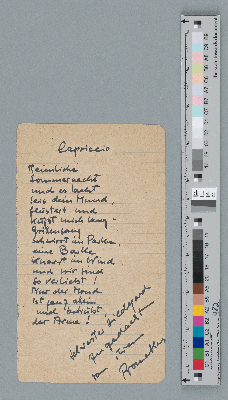 Capriccio
Heimliche
Sommernacht
und es lacht
leis dein Mund,
flüstert und
küsst mich lang -
Grillensang
schwirrt im Parke,
eine Barke
knarrt im Wind
und wir sind
so verliebt!
Nur der Mond
ist ganz allein
und betrübt,
der Arme!
Schwester Hildegard
zugedacht
von